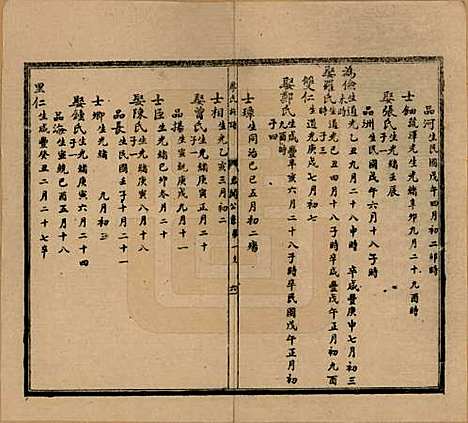 品河生民國戊午四月初二卯時
士釗生光緒辛卯九月二十九酉時
娶張氏生光緒壬辰
子一
品洲生民國戊午六月十八子時
為儉生道光乙丑九月二十八申時 卒咸豐庚申七月初三
未時
娶羅氏生道光己丑四月十八子時 卒咸豐戊午正月初九酉
雙仁生道光戊戌七月初七
娶鄭氏生咸豐辛亥六月二十八子時 卒民國戊午正月初
九酉時
子四
士璋生同治己巳五月初二
士相生光緒乙亥三月初二
娶曾氏生光緒庚辰四月二十
品揚生宣統庚戌九月十一
士臣生光緒己卯冬月二十
娶陳氏生光緒庚寅八月十八
子一
品長生民國壬子十月二十
士卿生光緒 九月初三
娶鍾氏生光緒庚寅六月二十四
子一
品海生宣統己酉五月十八
里仁生咸豐癸丑二月二十七卒